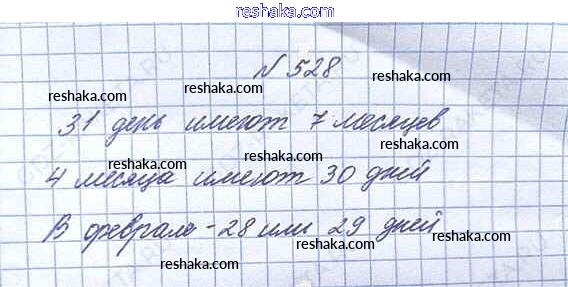 reshaka.com
N 528
reshaka.com reshaka.com
31 день имеют 7 месяцев
reshaka.com reshaka.com
4 месяца имеют 30 дней
reshaka.com reshaka.com
В феврале - 28 или 29 дней
reshaka.com reshaka.com